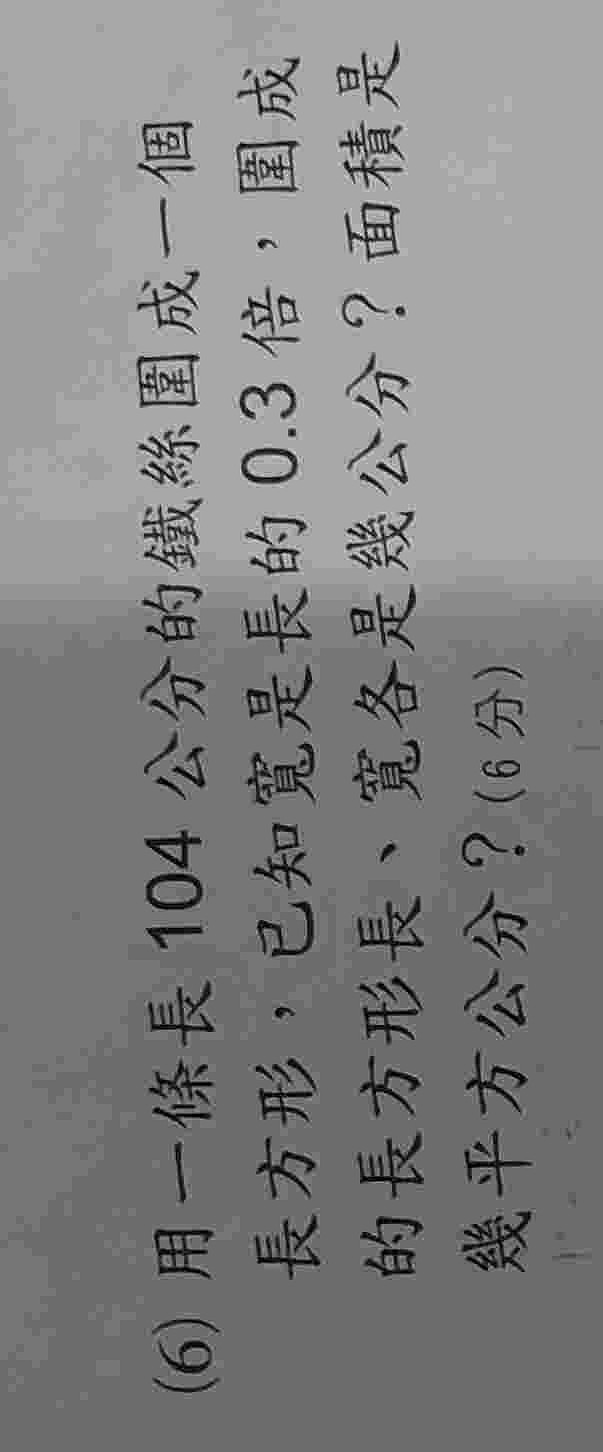 (6) 用一條長 104 公分的鐵絲圍成一個
長方形，已知寬是長的 0.3 倍，圍成
的長方形長、寬各是幾公分？面積是
幾平方公分？(6 分)